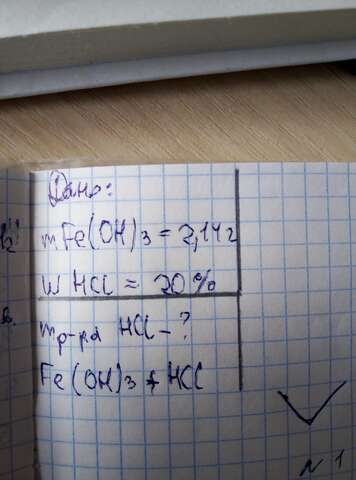 Дано:
m Fe(OH)3 = 2,14г
W HCl = 20%
m р-ра HCl - ?
Fe(OH)3 + HCl
N 1